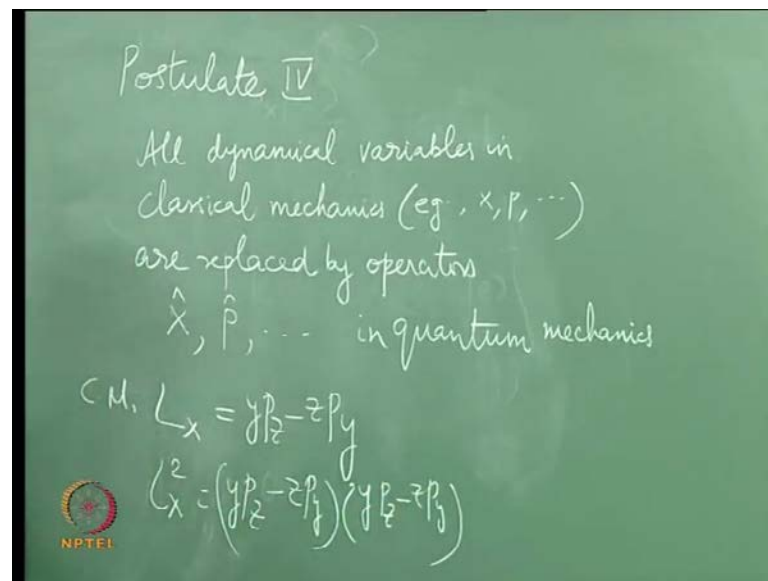 Postulate IV
All dynamical variables in
classical mechanics (eg., x, p, ...)
are replaced by operators
x̂, p̂, ... in quantum mechanics
CM. Lx = yPz - zPy
Lx² = (yPz - zPy)(yPz - zPy)
NPTEL